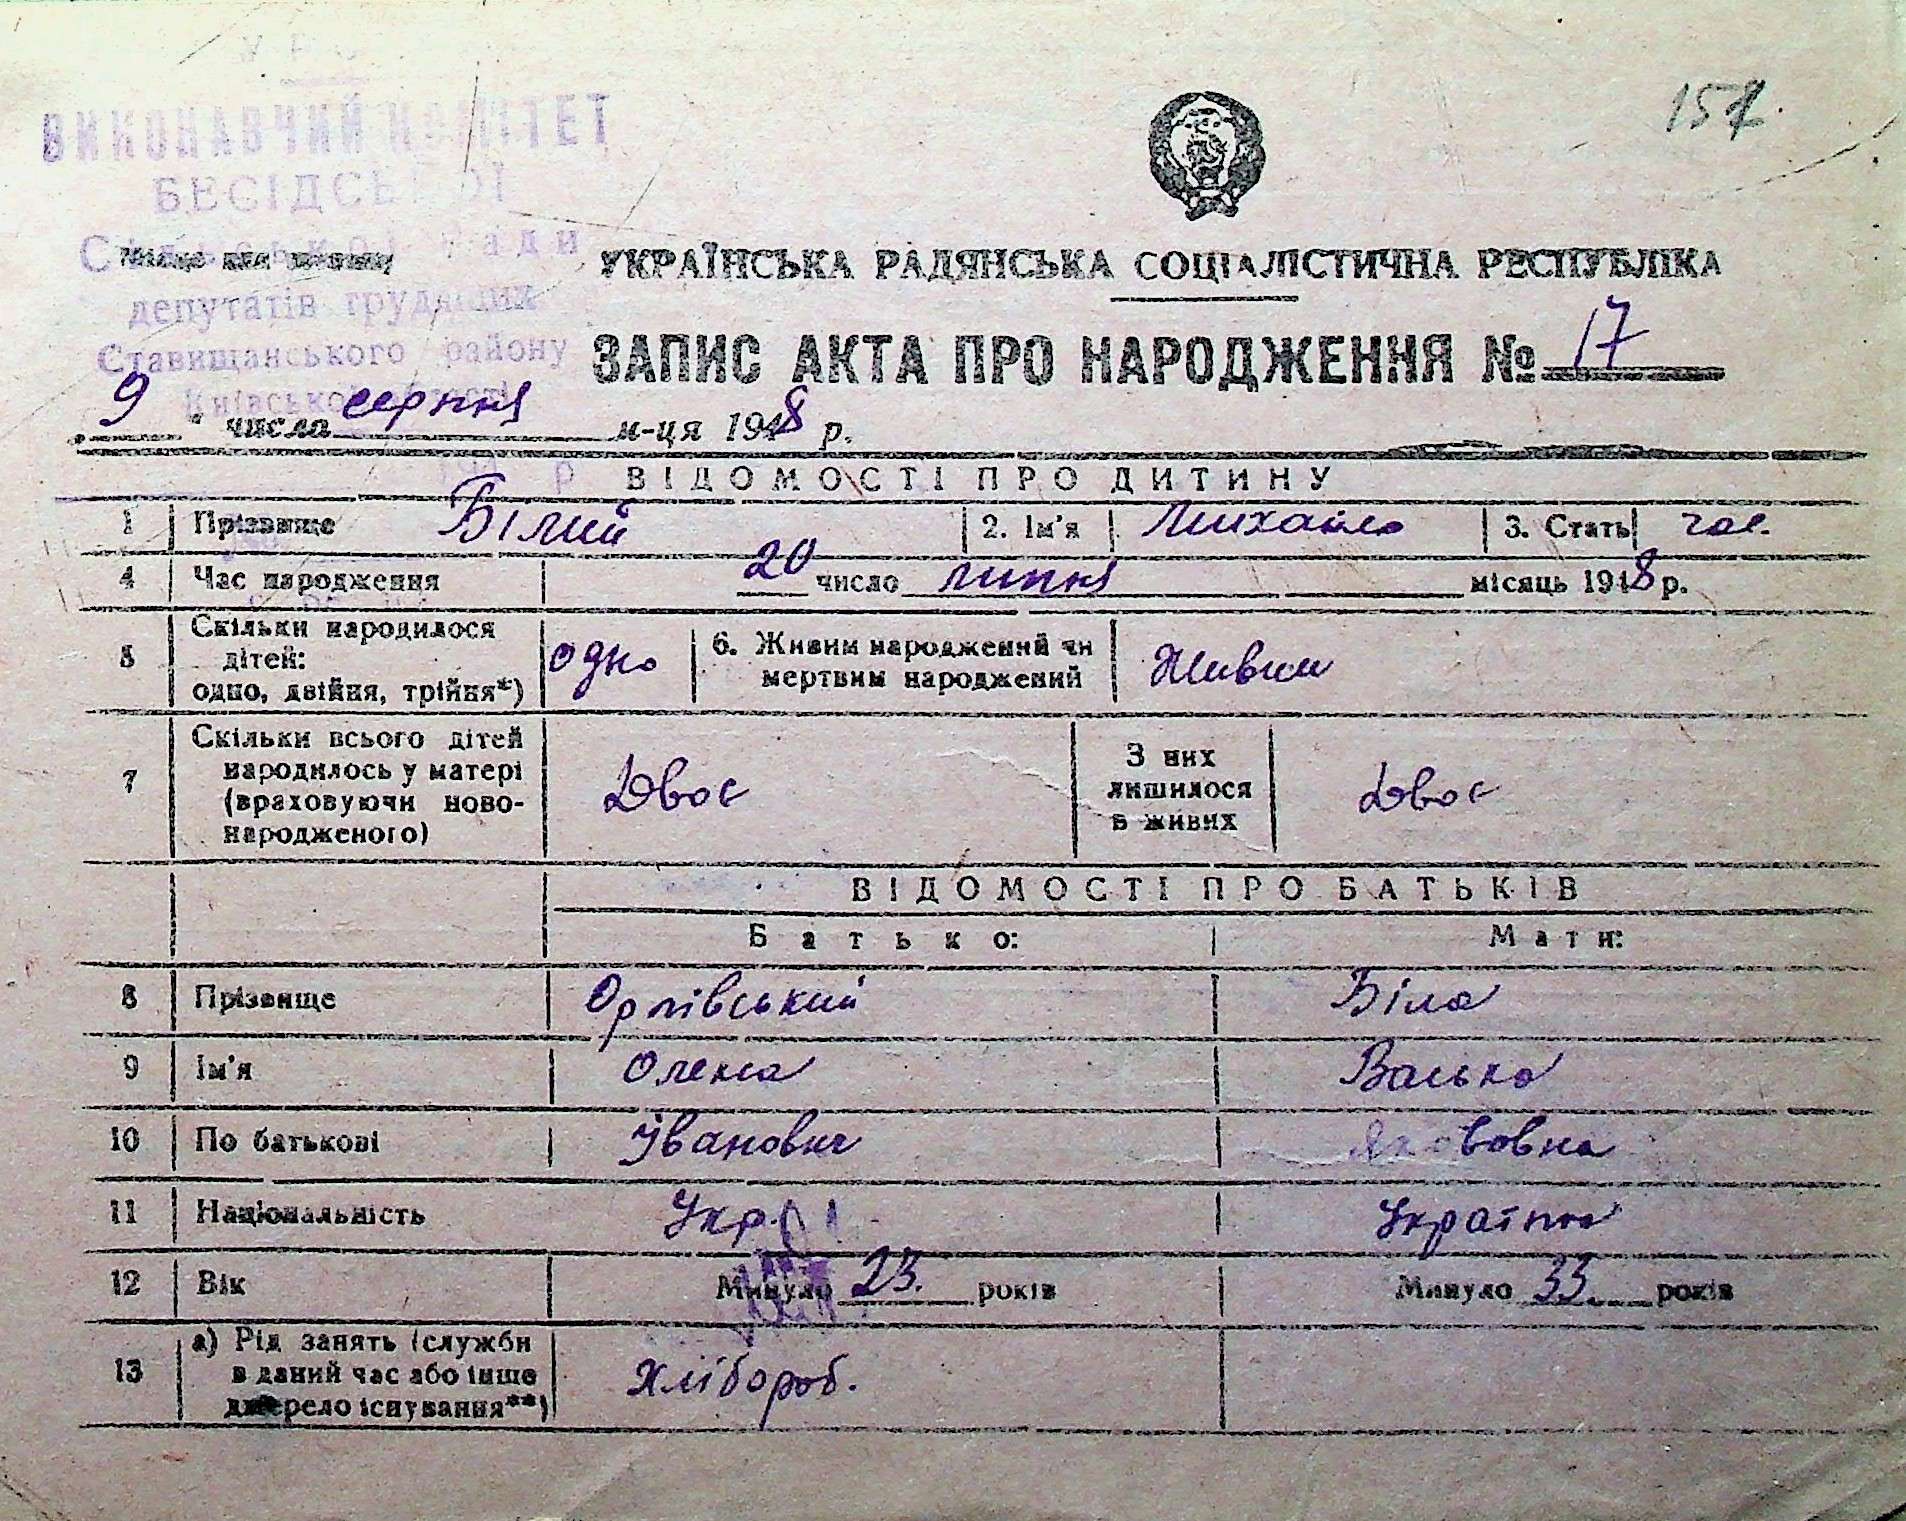 УРСР
ВИКОНАВЧИЙ КОМІТЕТ
БЕСІДСЬКОЇ
Сільської Ради
депутатів трудящих
Ставищанського району
Київської області
157.
УКРАЇНСЬКА РАДЯНСЬКА СОЦІАЛІСТИЧНА РЕСПУБЛІКА
ЗАПИС АКТА ПРО НАРОДЖЕННЯ № 17
9 " числа серпня м-ця 1948 р.
ВІДОМОСТІ ПРО ДИТИНУ
1 Прізвище Білий 2. Ім'я Михайло 3. Стать чол.
4 Час народження 20 число липня місяць 1948 р.
5 Скільки народилося дітей: одно, двійня, трійня*) одно 6. Живим народжений чи мертвим народжений Живим
7 Скільки всього дітей народилось у матері (враховуючи новонародженого) Двоє З них лишилося в живих Двоє
ВІДОМОСТІ ПРО БАТЬКІВ
Батько: Мати:
8 Прізвище Орлівський Біла
9 Ім'я Олекса Васька
10 По батькові Іванович Якововна
11 Національність Укр. Українка
12 Вік Минуло 23. років Минуло 33. років
13 а) Рід занять (служби в даний час або інше джерело існування**) Хлібороб.